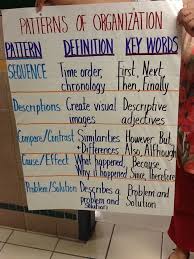 PATTERNS OF ORGANIZATION
PATTERN DEFINITION KEY WORDS
SEQUENCE Time order, First, Next,
chronology Then, Finally
Descriptions Create visual Descriptive
images adjectives
Compare/Contrast Similarities However, But,
+ Differences Also, Although
Cause/Effect What happened, Because,
Why it happened Since, Therefore
Problem/Solution Describes a Problem and
problem and Solution
Solution